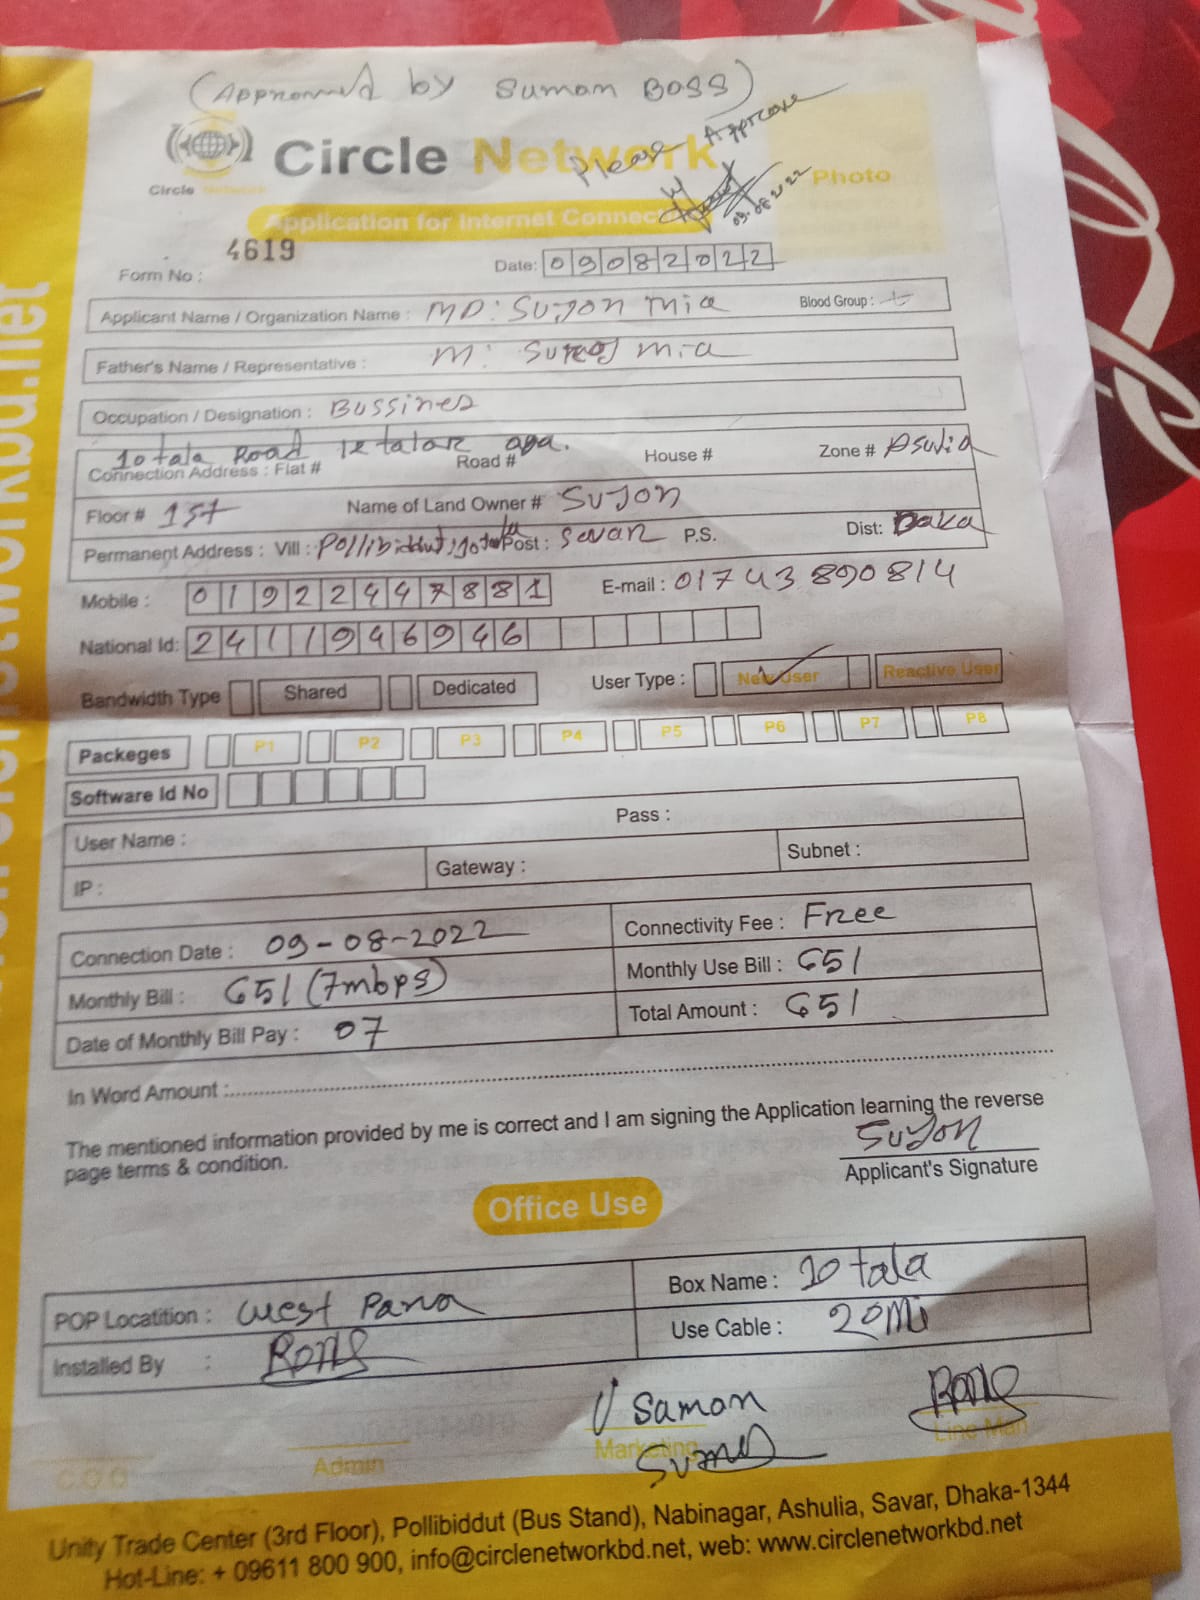 (Approved by Suman Boss)
Please Approve
09.08.2022
Circle Network
Circle Network
Photo
Application for Internet Connec
4619
Form No :
Date: 09082022
Applicant Name / Organization Name : MD: Sujon mia Blood Group :
Father's Name / Representative : M: Suruj mia
Occupation / Designation : Bussines
10 tala Road
Connection Address : Flat # Road # House # Zone # Asulia
Floor # 1st Name of Land Owner # Sujon
Permanent Address : Vill : Pollibiddut, 10 tala Post : Savar P.S. Dist: Daka
Mobile : 01922447881 E-mail : 01743890814
National Id: 2411946946
Bandwidth Type Shared Dedicated User Type : New User Reactive User
Packeges P1 P2 P3 P4 P5 P6 P7 P8
Software Id No
User Name : Pass :
IP : Gateway : Subnet :
Connection Date : 09-08-2022 Connectivity Fee : Free
Monthly Bill : 651 (7mbps) Monthly Use Bill : 651
Date of Monthly Bill Pay : 07 Total Amount : 651
In Word Amount :
The mentioned information provided by me is correct and I am signing the Application learning the reverse
page terms & condition.
Sujon
Applicant's Signature
Office Use
POP Locatition : West Para Box Name : 10 tala
Installed By : Rong Use Cable : 20Mi
Saman Rong
C.O.O Admin Marketing Line Man
Unity Trade Center (3rd Floor), Pollibiddut (Bus Stand), Nabinagar, Ashulia, Savar, Dhaka-1344
Hot-Line: + 09611 800 900, info@circlenetworkbd.net, web: www.circlenetworkbd.net